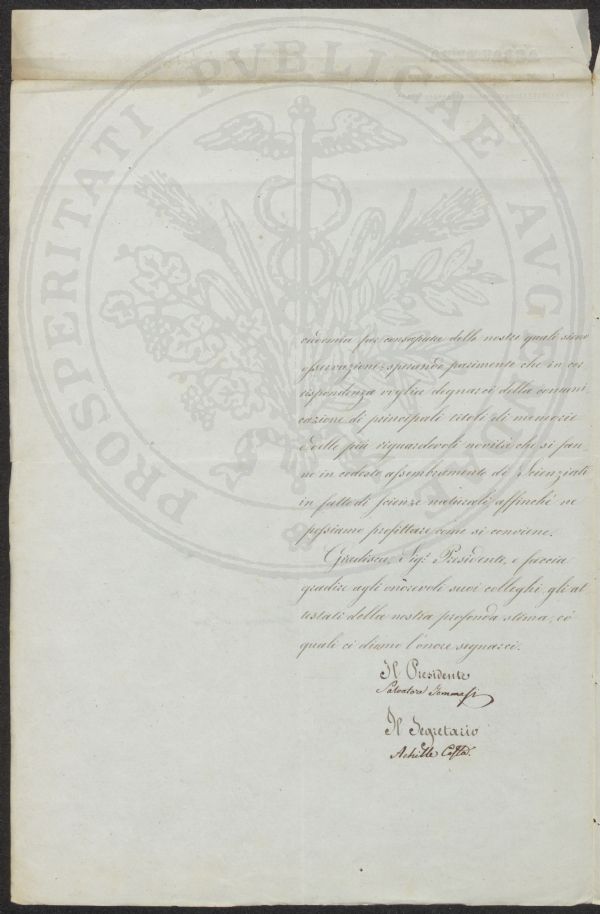 PROSPERITATI PVBLICAE AVGENDAE
cademia per consaputa delle nostre quali sieno
osservazioni; sperando parimente che in cor
rispondenza voglia degnarci della comuni
cazione di principali titoli di memorie
e delle più riguardevoli novità che si fan
no in codesto assembramento di Scienziati
in fatto di scienze naturali, affinché ne
possiamo profittare come si conviene.
Gradisca, Sig.r Presidente, e faccia
gradire agli onorevoli suoi colleghi gli at
testati della nostra profonda stima, co'
quali ci diamo l'onore segnarci.
Il Presidente
Salvatore Tommasi
Il Segretario
Achille Costa.